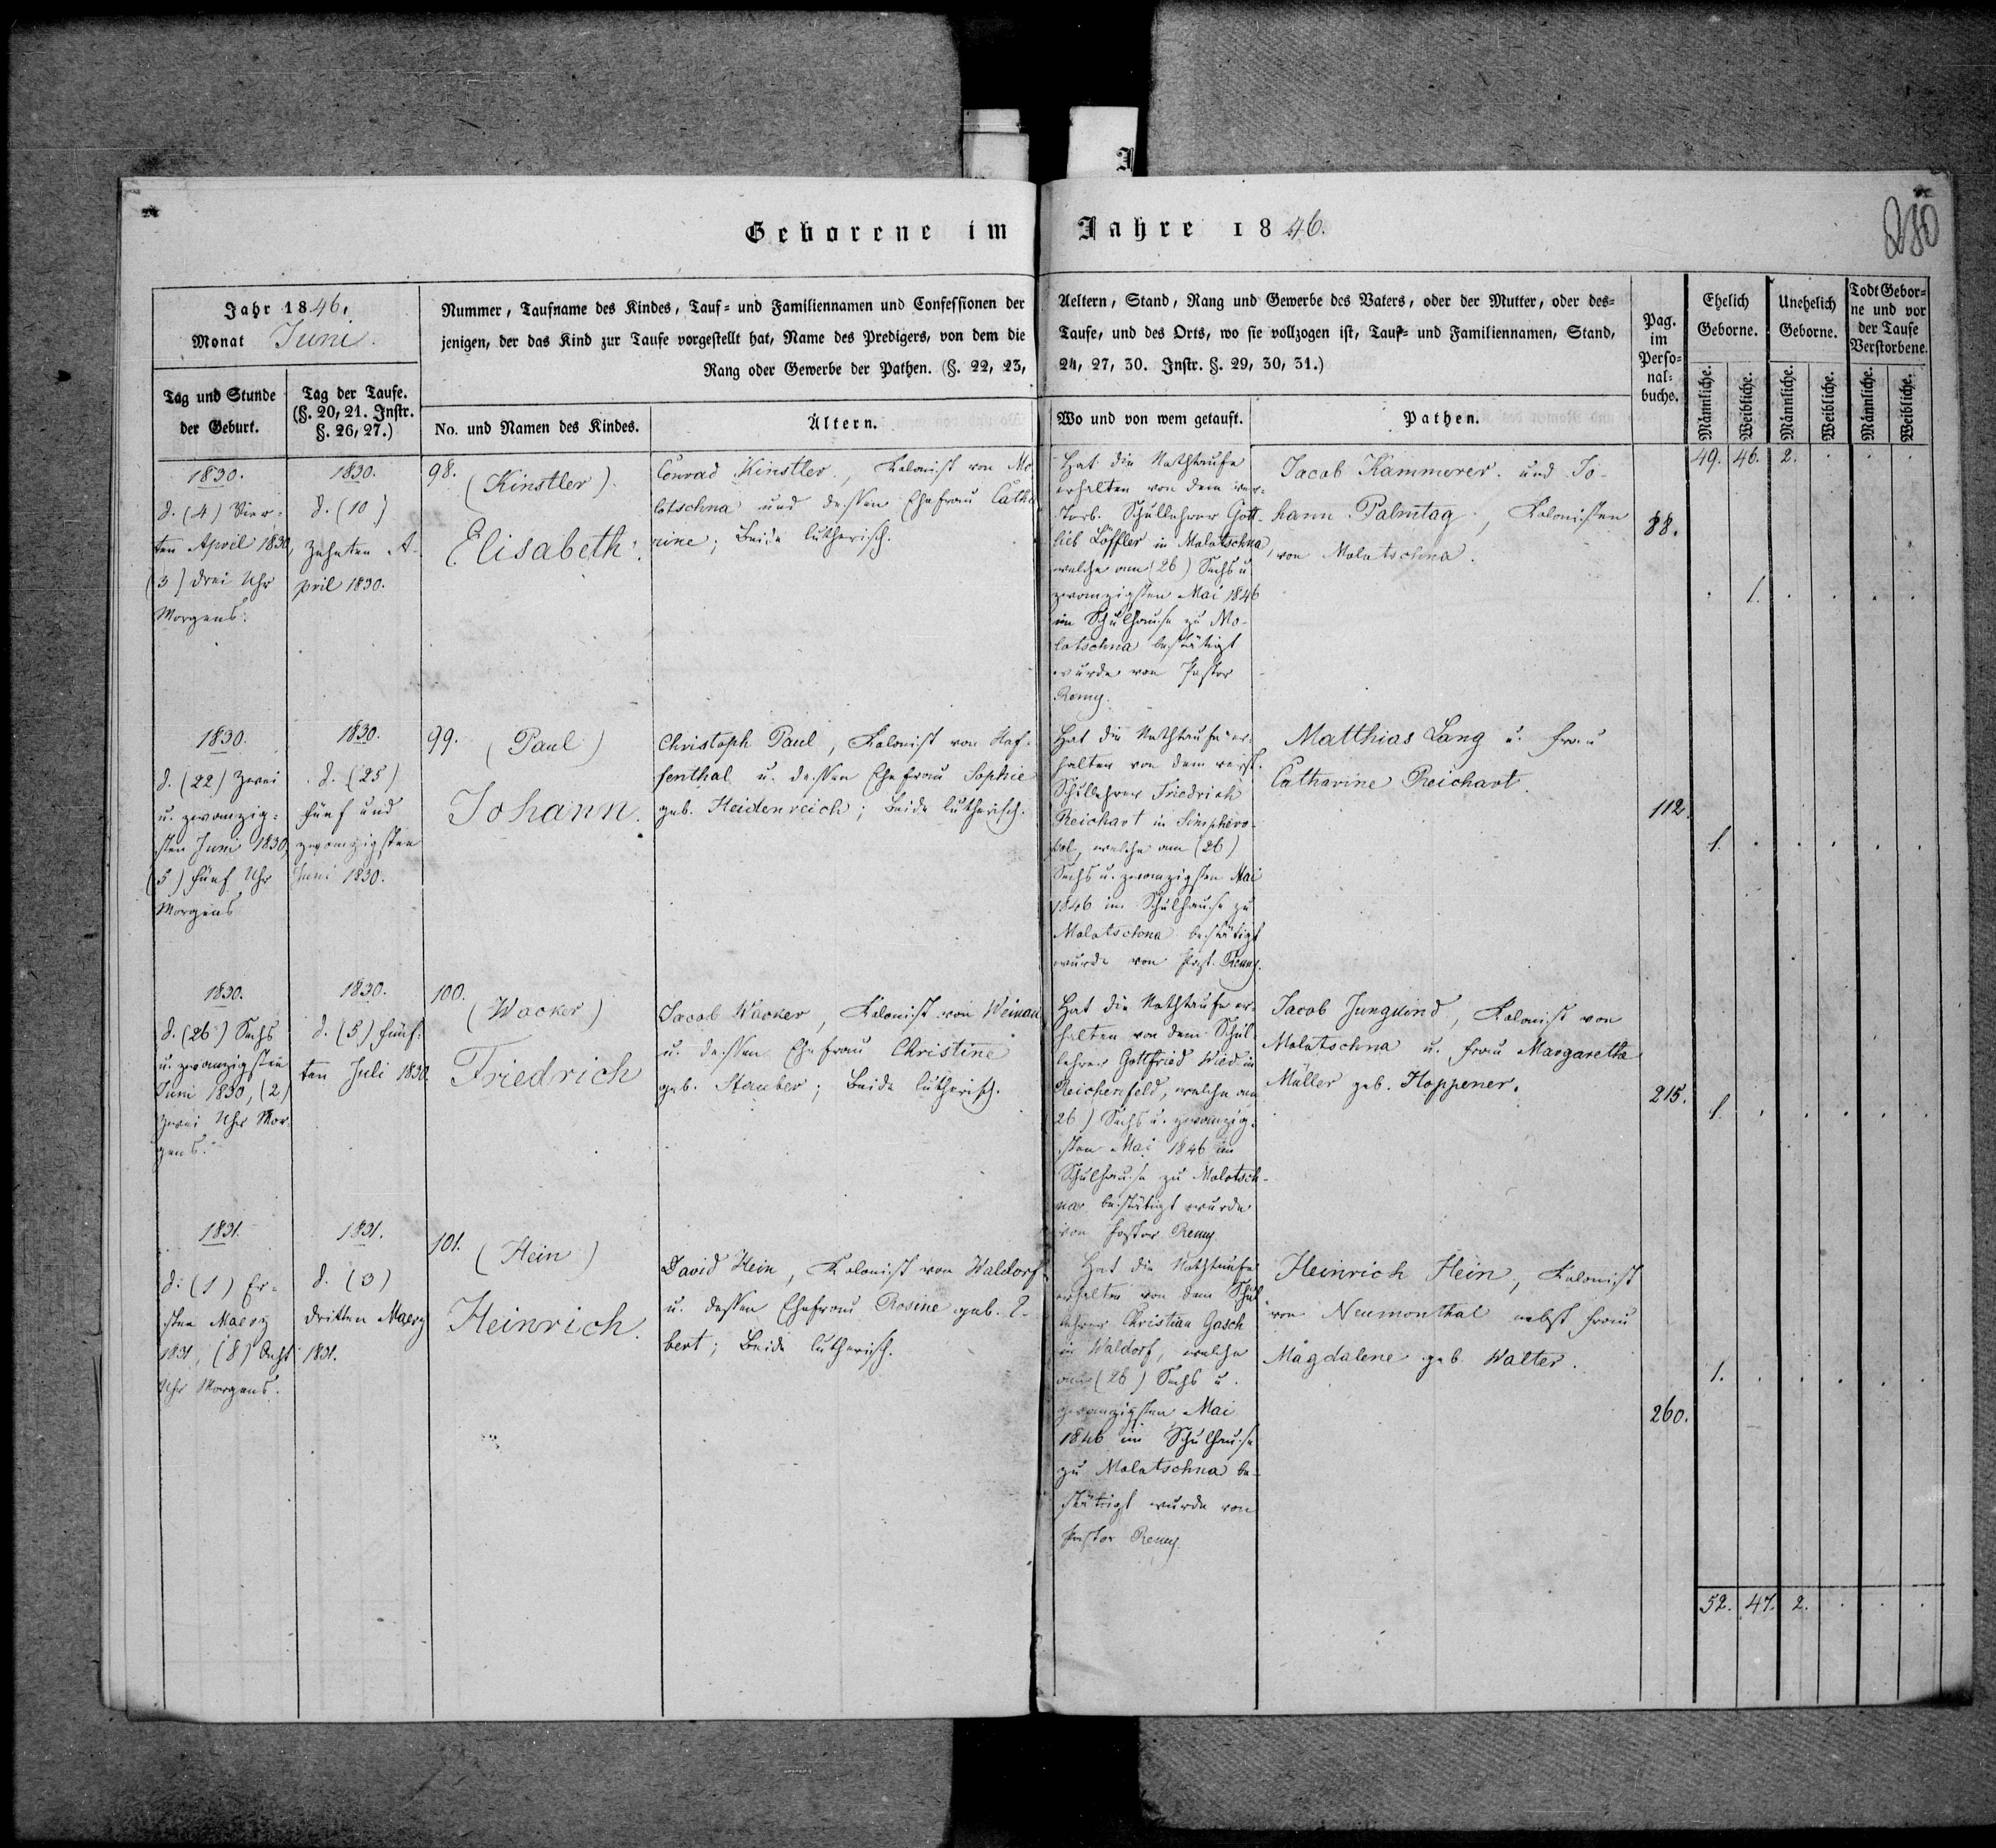 Geborene im Jahre 1846.
280
Jahr 1846.
Monat Juni.
Nummer, Taufname des Kindes, Tauf= und Familiennamen und Confessionen der Aeltern, Stand, Rang und Gewerbe des Vaters, oder der Mutter, oder des=
jenigen, der das Kind zur Taufe vorgestellt hat, Name des Predigers, von dem die Taufe, und des Orts, wo sie vollzogen ist, Tauf= und Familiennamen, Stand,
Rang oder Gewerbe der Pathen. (§. 22, 23, 24, 27, 30. Instr. §. 29, 30, 31.)
Tag und Stunde
der Geburt.
Tag der Taufe.
(§. 20, 21. Instr.
§. 26, 27.)
No. und Namen des Kindes.
Ältern.
Wo und von wem getauft.
Pathen.
Pag.
im
Perso=
nal=
buche.
Ehelich
Geborne.
Unehelich
Geborne.
Todt Gebor=
ne und vor
der Taufe
Verstorbene.
Männliche.
Weibliche.
Männliche.
Weibliche.
Männliche.
Weibliche.
49. 46. 2. . . .
1830.
d. (4) Vier=
ten April 1830,
(3) drei Uhr
Morgens.
1830.
d. (10)
zehnten A-
pril 1830.
98.
(Kinstler).
Elisabeth.
Conrad Kinstler, Kolonist von Mo
lotschna und dessen Ehefrau Catha
rine; Beide lutherisch.
Hat die Nothtaufe
erhalten von dem ver=
storb. Schullehrer Gott-
lieb Löffler in Molotschna,
welche am (26) Sechs u.
zwanzigsten Mai 1846
im Schulhause zu Mo-
lotschna bestätigt
wurde von Pastor
Remy.
Jacob Kammerer und Jo-
hann Palmtag, Kolonisten
von Molotschna.
88.
. 1. . . . .
1830.
d. (22) Zwei
u. zwanzig=
sten Juni 1830,
(5) fünf Uhr
Morgens
1830.
d. (25)
fünf und
zwanzigsten
Juni 1830.
99.
(Paul)
Johann.
Christoph Paul, Kolonist von Kaf-
fenthal u. dessen Ehefrau Sophie
geb. Heidenreich; Beide lutherisch.
Hat die Nothtaufe er-
halten von dem verst.
Schullehrer Friedrich
Reichart in Simphero-
pol, welche am (26)
Sechs u. zwanzigsten Mai
1846 im Schulhause zu
Molotschna bestätigt
wurde von Past. Remy.
Matthias Lang u. Frau
Catharine Reichart.
112.
1. . . . . .
1830.
d. (26) Sechs
u. zwanzigsten
Juni 1830, (2)
zwei Uhr Mor-
gens.
1830.
d. (5) fünf-
ten Juli 1830
100.
(Wacker)
Friedrich
Jacob Wacker, Kolonist von Weinau
u. dessen Ehefrau Christine
geb. Stauber; Beide lutherisch.
Hat die Nothtaufe er-
halten von dem Schul-
lehrer Gottfried Wied in
Reichenfeld, welche am
26) Sechs u. zwanzig-
sten Mai 1846 im
Schulhause zu Molotsch-
na bestätigt wurde
von Pastor Remy.
Jacob Jungkind, Kolonist von
Molotschna u. Frau Margaretha
Müller geb. Hoppener.
215.
1. . . . . .
1831.
d. (1) Er-
sten Maerz
1831, (8) Acht
Uhr Morgens.
1831.
d. (3)
dritten Maerz
1831.
101.
(Hein)
Heinrich.
David Hein, Kolonist von Waldorf
u. dessen Ehefrau Rosine geb. E-
bert; Beide lutherisch.
Hat die Nothtaufe
erhalten von dem Schul
lehrer Christian Gasch
in Waldorf, welche
am (26) Sechs u.
zwanzigsten Mai
1846 im Schulhause
zu Molotschna be-
stätigt wurde von
Pastor Remy.
Heinrich Hein, Kolonist
von Neumonthal nebst Frau
Magdalene geb. Walter.
260.
1. . . . . .
52. 47. 2. . . .